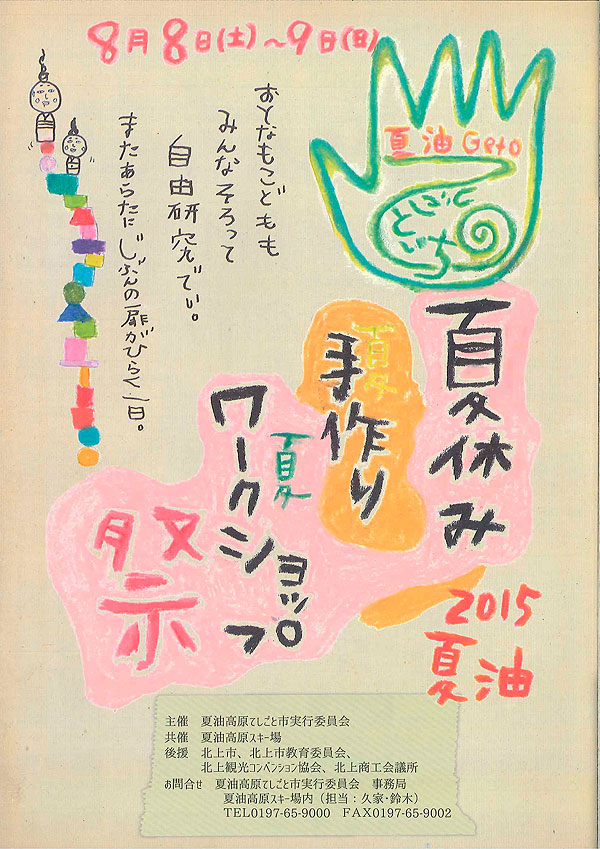 8月8日(土)〜9日(日)
夏油Geto
てしごと
といち
おとなもこどもも
みんなそろって
自由研究でい。
またあらたにじぶんの扉がひらく一日。
夏休み
夏
手作り
夏
ワークショップ
祭
2015
夏油
主催 夏油高原てしごと市実行委員会
共催 夏油高原スキー場
後援 北上市、北上市教育委員会、
北上観光コンベンション協会、北上商工会議所
お問合せ 夏油高原てしごと市実行委員会 事務局
夏油高原スキー場内（担当：久家・鈴木）
TEL0197-65-9000 FAX0197-65-9002